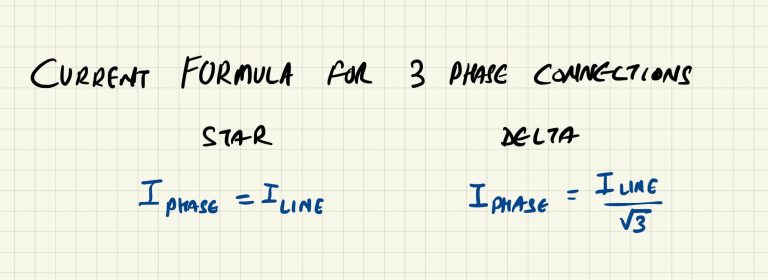 CURRENT FORMULA FOR 3 PHASE CONNECTIONS
STAR DELTA
I PHASE = I LINE I PHASE = I LINE / √3